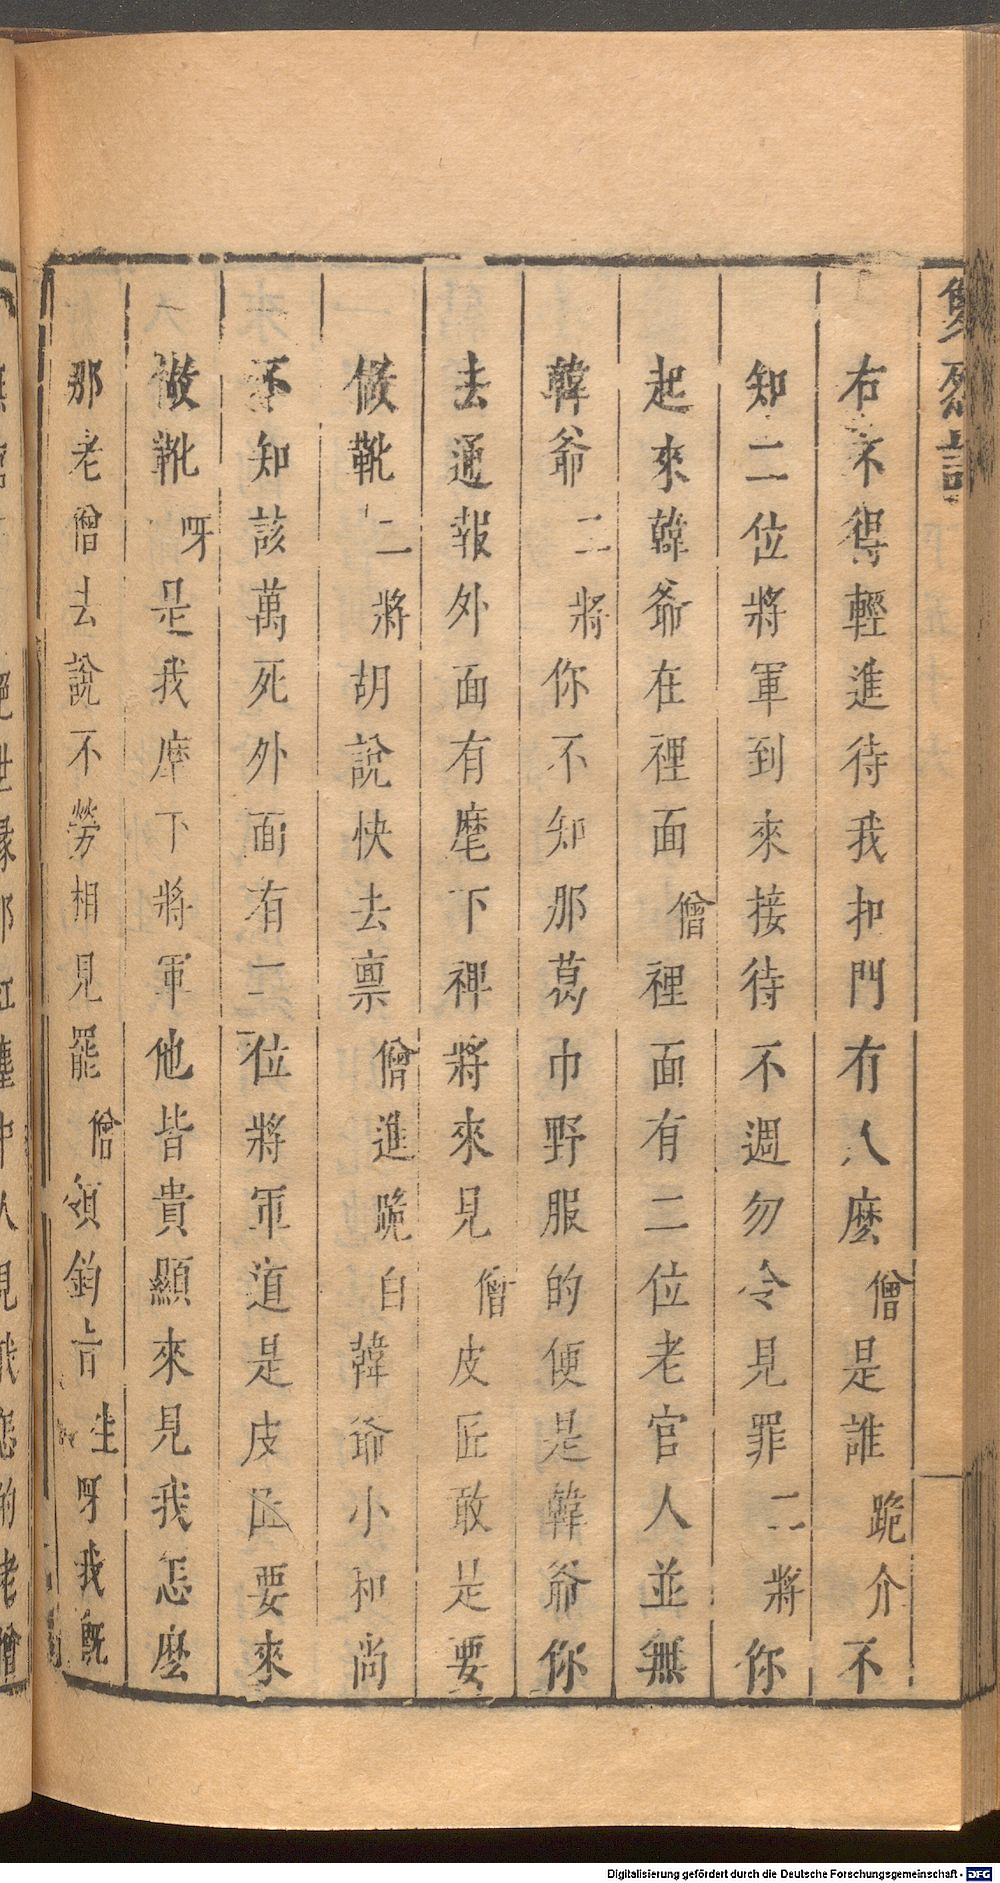 雙烈記
右不得輕進待我扣門有人麽僧是誰跪介不
知二位將軍到來接待不週勿令見罪二將你
起來韓爺在裡面僧裡面有二位老官人並無
韓爺二將你不知那葛巾野服的便是韓爺你
去通報外面有麾下裨將來見僧皮匠敢是要
做靴二將胡說快去禀僧進跪白韓爺小和尚
不知該萬死外面有二位將軍道是皮匠要來
做靴呀是我麾下將軍他皆貴顯來見我怎麽
那老僧去說不勞相見罷僧領鈞旨生呀我既
Digitalisierung gefördert durch die Deutsche Forschungsgemeinschaft - DFG